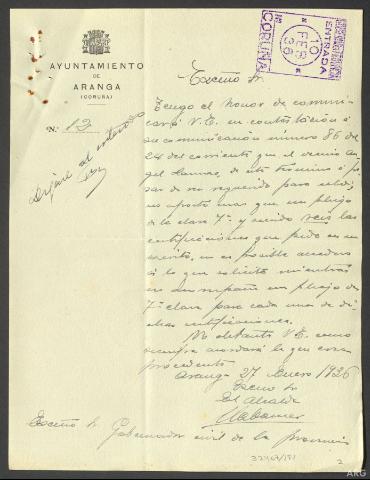 AYUNTAMIENTO
DE
ARANGA
(CORUÑA)
N.º 12
ENTRADA
10 FEB 36
CORUÑA
Excmo Sr.
Tengo el honor de comuni-
car á V.E. en contestación á
su comunicación número 86 de
24 del corriente que el vecino
de este término á pe-
sar de ser requerido para ello,
no aportó mas que un pliego
de la clase 7ª y siendo seis las
certificaciones que pide en su
escrito, no es posible acceder
á lo que solicita mientras
no acompañe un pliego de
7ª clase para cada una de di-
chas certificaciones.
No obstante V.E. como
siempre acordará lo que crea
procedente.
Aranga 27 Enero 1936
Excmo Sr
El Alcalde
Excmo Sr Gobernador civil de la provincia
2
ARG